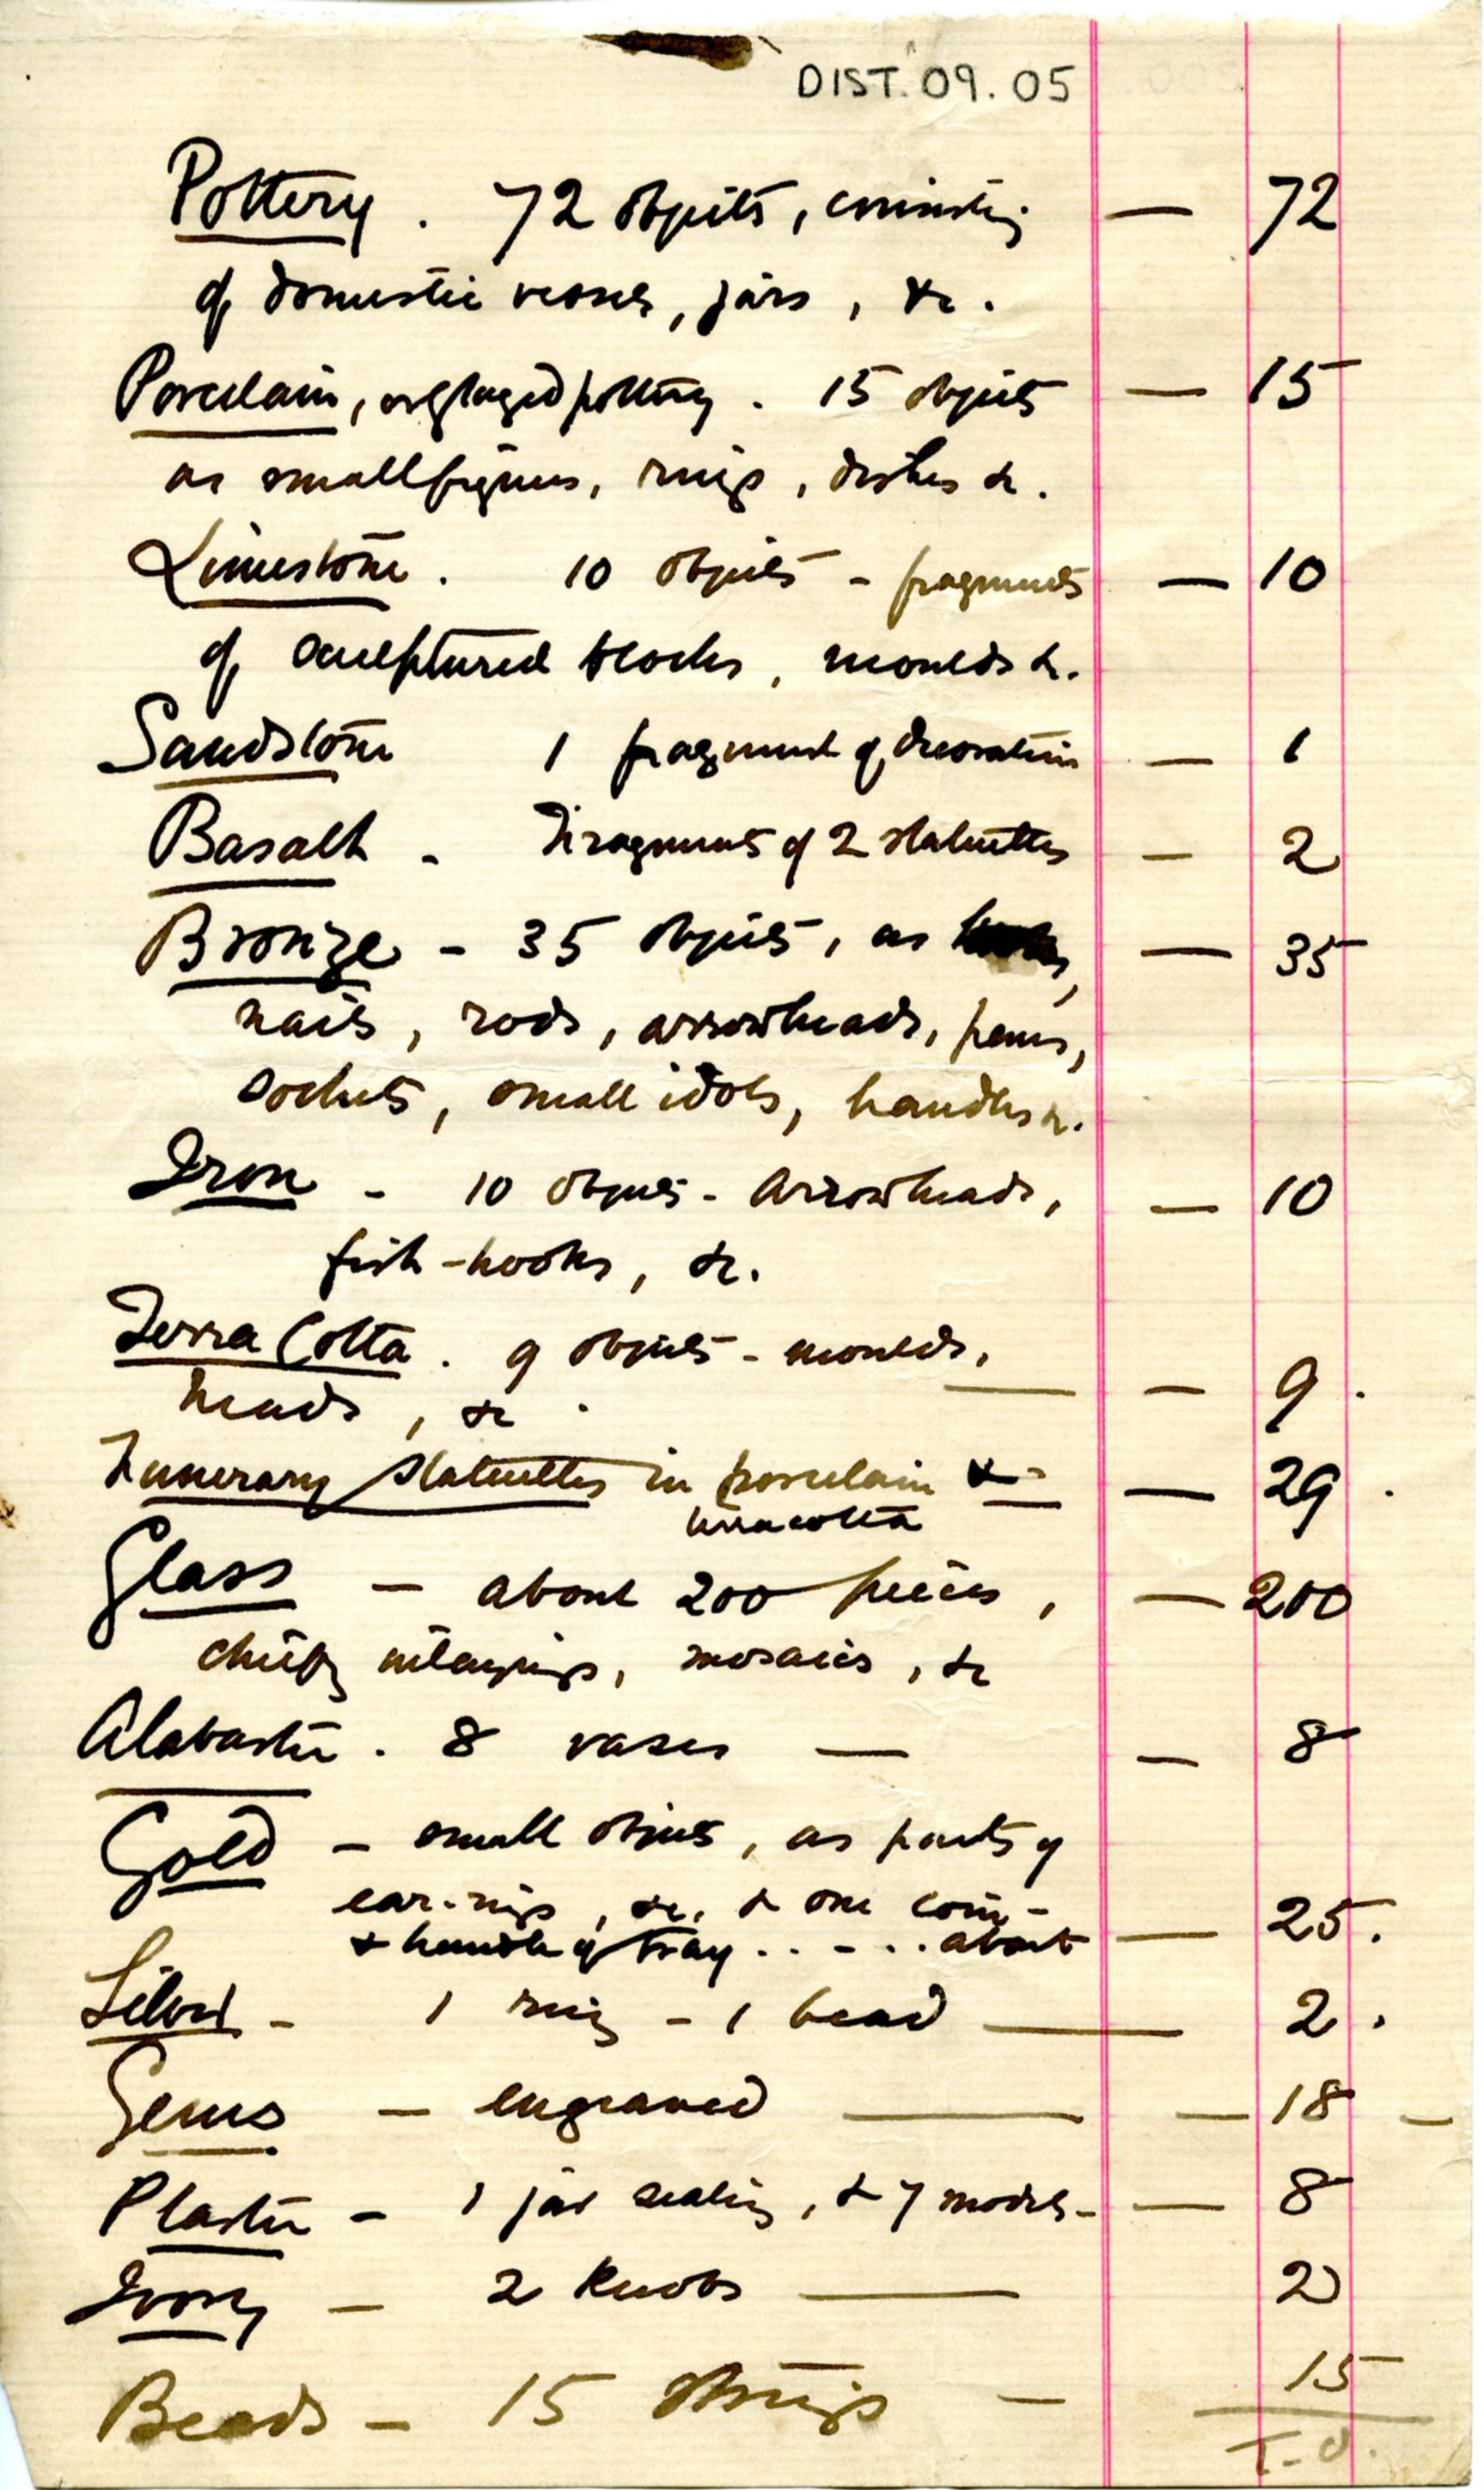 DIST. 09. 05
Pottery . 72 objects, consisting — 72
of domestic vases, jars, &c.
Porcelain, or glazed pottery . 15 objects — 15
as small figures, rings, dishes &c.
Limestone . 10 objects - fragments — 10
of sculptured blocks, moulds &c.
Sandstone 1 fragment of decoration — 1
Basalt - Fragments of 2 statuettes — 2
Bronze - 35 objects, as — 35
nails, rods, arrowheads, pens,
sockets, small idols, handles &c.
Iron - 10 objects - Arrowheads, — 10
fish-hooks, &c.
Terra Cotta . 9 objects - moulds,
heads, &c . — — 9 .
Funerary statuettes in porcelain & — 29 .
terracotta
Glass — about 200 pieces, — 200
chiefly inlayings, mosaics, &c
Alabaster . 8 vases — — 8
Gold - small objects, as parts of
ear-rings, &c. & one coin -
& handle of tray . . - . . about — 25 .
Silver - 1 ring - 1 bead — 2 .
Gems — engraved — — 18 —
Plaster - 1 jar sealing, & 7 models - — 8
Ivory — 2 knobs — 2
Beads - 15 strings — 15
T.O.